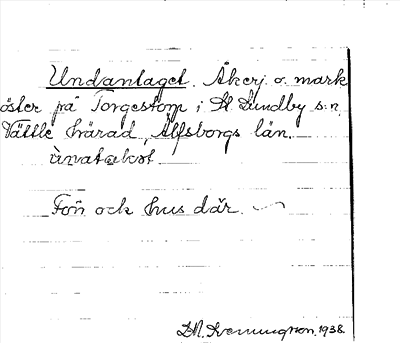 Undantaget. Åkerj. o. mark
öster på Torgestorp i St. Lundby s:n,
Vättle härad, Älfsborgs län.
Förr och hus där.
1938.